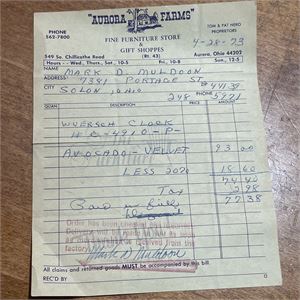 "AURORA FARMS"
PHONE
562-7800
TOM & PAT NERO
PROPRIETORS
FINE FURNITURE STORE
&
GIFT SHOPPES
4-28-73
549 So. Chillicothe Road
(Rt. 43)
Aurora, Ohio 44202
Hours - Wed., Thurs., Sat., 10-5
Fri. 10-9
Sun., 12-5
NAME MARK D. MULDOON
ADDRESS 7381 PORTAGE ST
CITY SOLON, OHIO 44139
248 PHONE 5921
QUAN. DESCRIPTION PRICE
WUERSCH CLOCK
# C-4910-P-
AVOCADO - VELVET 93 00
LESS 20% 18 60
74 40
Tax 2 98
Paid in Full 77.38
Order has been checked and
received from the
factory.
Mark D Muldoon
All claims and returned goods MUST be accompanied by this bill.
REC'D BY